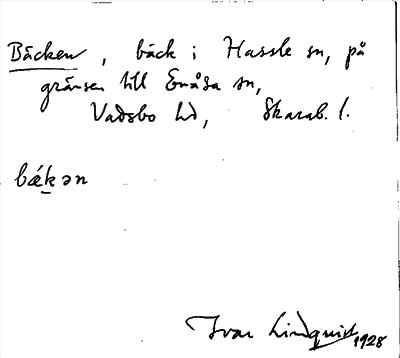 Bäcken, bäck i Hassle sn, på
gränsen till Enåsa sn,
Vadsbo hd, Skarab. l.
bǽk̲ən
Ivar Lindquist 1928